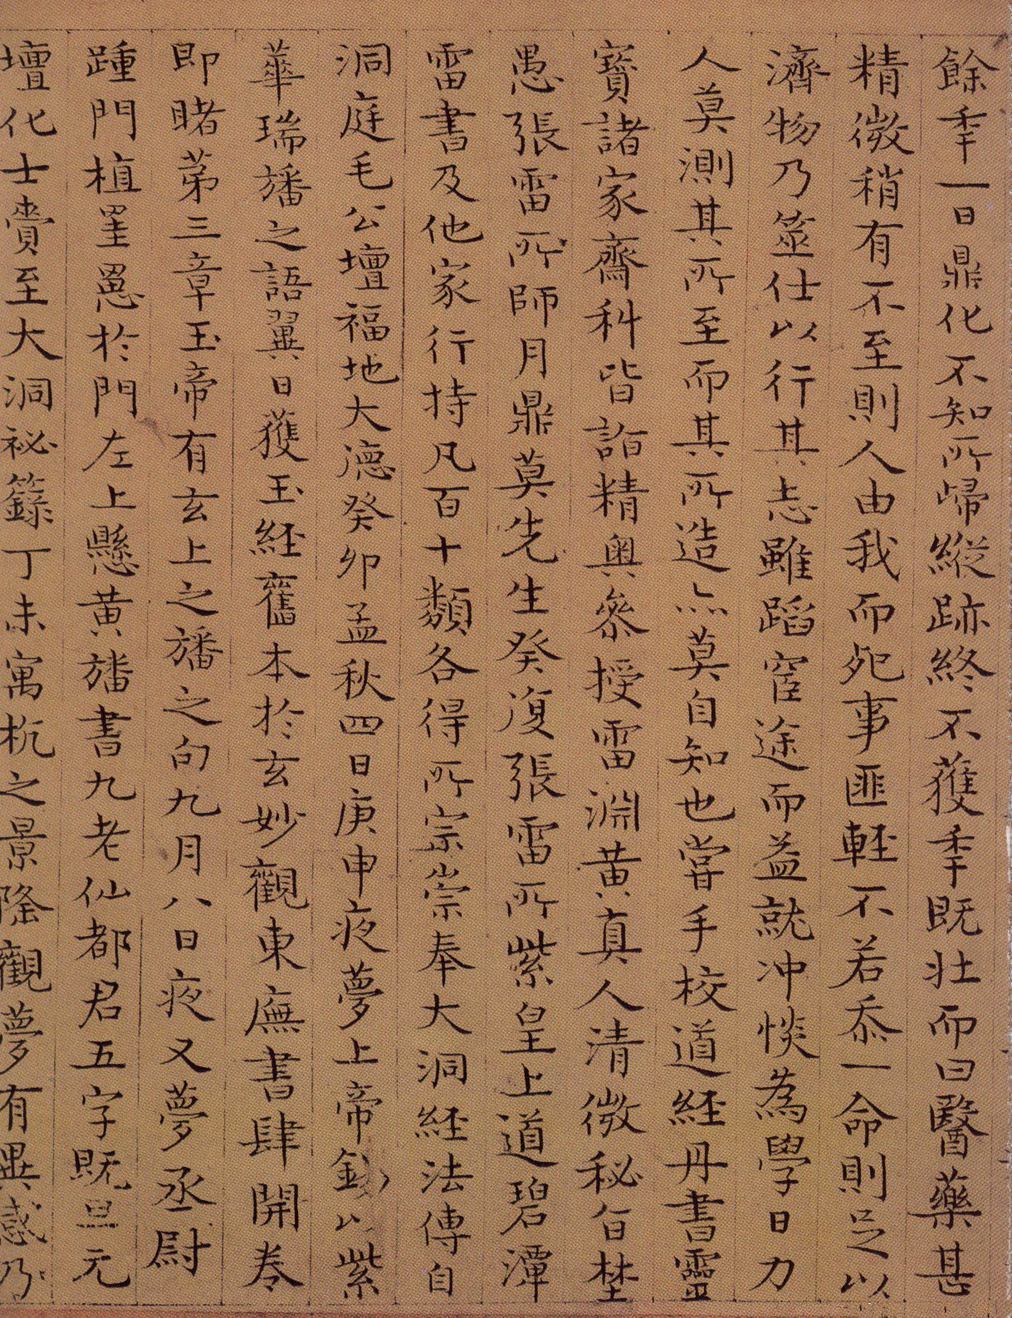 餘秊一日鼎化不知所歸縱跡終不獲秊既壯而曰醫藥甚
精微稍有不至則人由我而死事匪輕不若忝一命則足以
濟物乃筮仕以行其志雖蹈宦途而益就冲惔為學日力
人莫測其所至而其所造亦莫自知也嘗手校道經丹書靈
寳諸家齋科皆詣精奥叅授雷淵黄真人清微秘旨埜
愚張雷所師月鼎莫先生癸復張雷所紫皇上道碧潭
雷書及他家行持凡百十類各得所宗崇奉大洞經法傳自
洞庭毛公壇福地大德癸卯孟秋四日庚申夜夢上帝錫以紫
華瑞旛之語翼日獲玉經舊本於玄妙觀東廡書肆開卷
即睹苐三章玉帝有玄上之旛之句九月八日夜又夢丞尉
踵門植罣罳於門左上懸黄旛書九老仙都君五字既旦元
壇化士賫至大洞祕籙丁未寓杭之景隆觀夢有異感乃